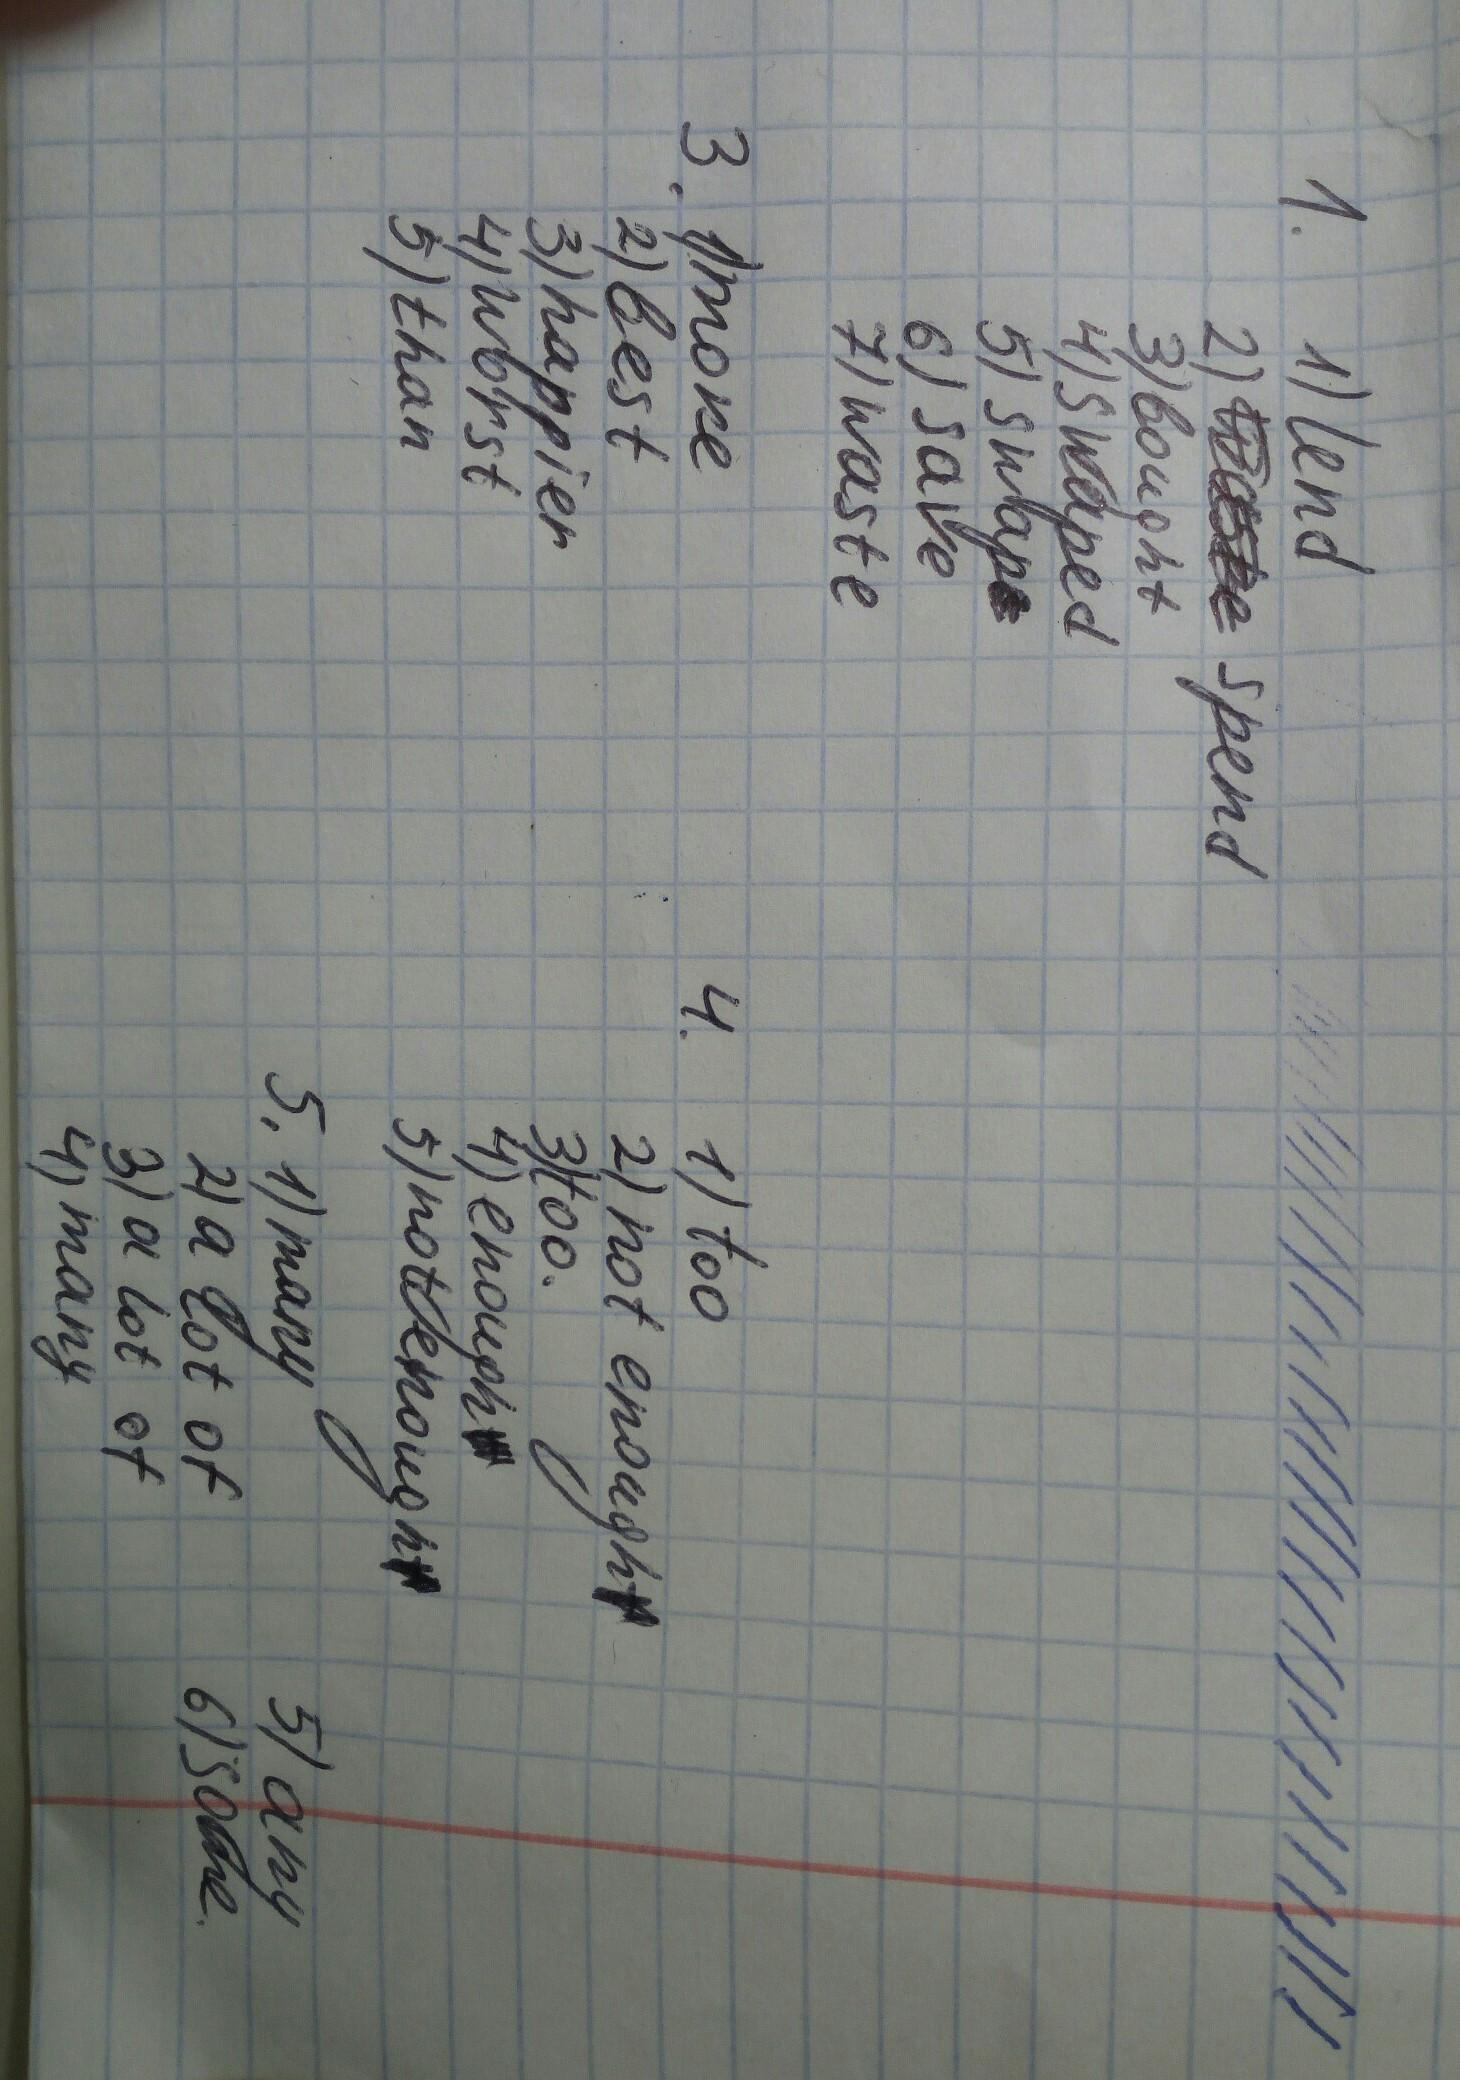 1. 1) lend
2) spend
3) bought
4) swaped
5) swap
6) save
7) waste
3. 1) more
2) best
3) happier
4) worst
5) than
4. 1) too
2) not enough
3) too.
4) enough
5) not enough
5. 1) many
2) a lot of
3) a lot of
4) many
5) any
6) some.